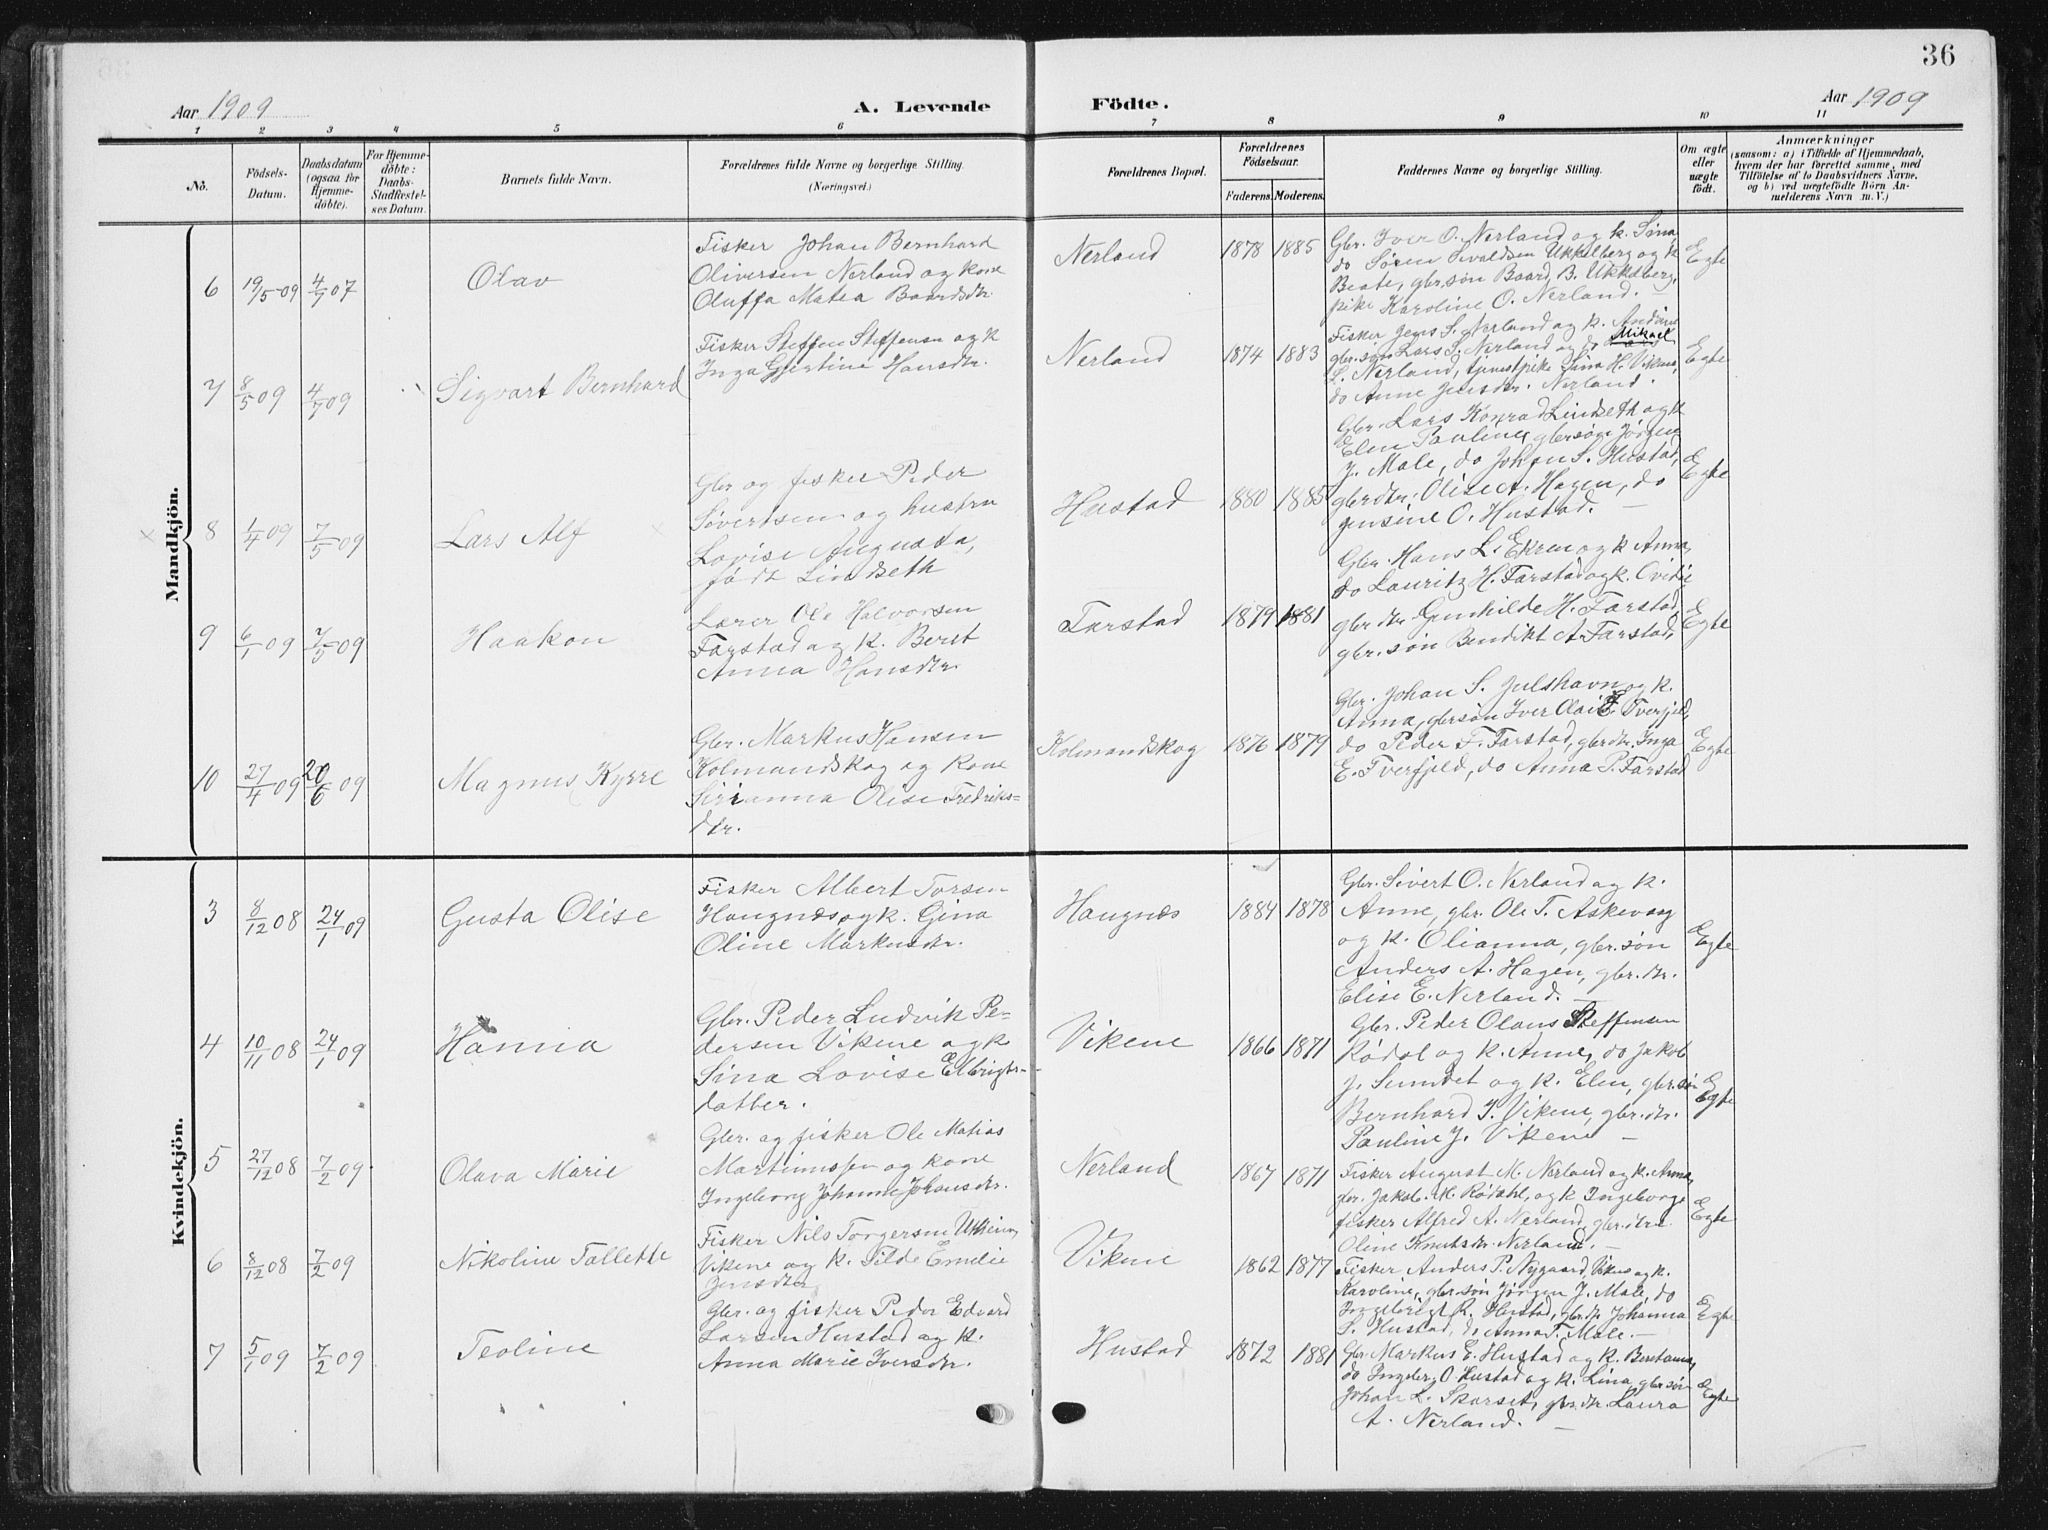 36
Aar 1909
A. Levende
Födte.
Aar 1909
1 2 3 4 5 6 7 8 9 10 11
No.
Födsels-
Datum.
Daabsdatum
(ogsaa for
Hjemme-
döbte).
For Hjemme-
döbte:
Daabs-
Stadfæstel-
ses Datum.
Barnets fulde Navn.
Forældrenes fulde Navne og borgerlige Stilling.
(Næringsvei.)
Forældrenes Bopæl.
Forældrenes
Födselsaar.
Faderens. Moderens.
Faddernes Navne og borgerlige Stilling.
Om ægte
eller
uægte
födt.
Anmærkninger
(saasom: a) i Tilfælde af Hjemmedaab,
hvem der har forrettet samme, med
Tilföielse af to Daabsvidners Navne,
og b) ved uægtefödte Börn An-
melderens Navn m. V.)
Mandkjön.
6 19/5 09 4/7 07 Olav
Fisker Johan Bernhard
Oliversen Nerland og kone
Oluffa Matea Baardsdtr.
Nerland 1878 1885
Gbr. Iver O. Nerland og k. Sina,
do Søren Sivaldsen Ukkelberg og k
Beate, gbr.søn Baard B. Ukkelberg,
pike Karoline O. Nerland. –
Egte
7 8/5 09 4/7 09 Sigvart Bernhard
Fisker Steffen Steffensen og k
Inga Gjertine Hansdtr.
Nerland 1874 1883
Fisker Jens S. Nerland og k.
gbr.søn Lars S. Nerland og do Mikael
L. Nerland, tjenestpike Sina H. Vikene,
do Anne Jensdtr. Nerland.
Egte
8 1/4 09 7/5 09 Lars Alf
Gbr og fisker Peder
Sivertsen og hustru
Lovise Augusta,
født Lindseth
Hustad 1880 1885
Gbr. Lars Konrad Lindseth og k
Elen Pauline, gbr søn Jørgen
J. Male, do Johan S. Hustad,
gbrdtr. Olise A. Hagen, do
Jensine O. Hustad. –
Egte
9 6/1 09 7/5 09 Haakon
Lærer Ole Halvorsen
Farstad og k. Beret
Anna Hansdtr.
Farstad 1879 1881
Gbr. Hans L. Ekren og k Anna,
do Lauritz H. Farstad og k. Ovidie
gbr dtr Gunhilde H. Farstad,
gbr. søn Bendikt A. Farstad,
Egte
10 27/4 09 20/6 09 Magnus Kyrre
Gbr. Markus Hansen
Kolmandskog og kone
Sirianna Olise Fredriks-
dtr.
Kolmandskog 1876 1879
Gbr. Johan S. Julshavn og k.
Anna, gbrsøn Iver Olai E. Tverfjeld,
do Peder F. Farstad, gbrdtr. Inga
E. Tverfjeld, do Anna P. Farstad
Egte
Kvindekjön.
3 8/12 08 24/1 09 Gusta Olise
Fisker Albert Torsen
Haugnæs og k. Gina
Oline Markusdtr.
Haugnæs 1884 1878
Gbr. Sivert O. Nerland og k.
Anne, gbr. Ole T. Askevaag
og k. Olianna, gbr. søn
Anders A. Hagen, gbr. dtr.
Elise E. Nerland. –
Egte
4 10/11 08 24/1 09 Hanna
Gbr. Peder Ludvik Pe-
dersen Vikene og k
Sina Lovise Elbrigts-
datter.
Vikene 1866 1871
Gbr. Peder Olaus Steffensen
Rødal og k. Anne, do Jakob
J. Sundet og k. Elen, gbr. søn
Bernhard J. Vikene, gbr. dtr.
Pauline J. Vikene –
Egte
5 27/12 08 7/2 09 Olava Marie
Gbr. og fisker Ole Matias
Martinussen og kone
Ingeborg Johanne Johansdtr.
Nerland 1867 1871
Fisker August M. Nerland og k. Anna,
gbr. Jakob M. Rødahl, og k Ingeborg
fisker Alfred A. Nerland, gbr. dtr.
Oline Knutsdtr. Nerland. –
Egte
6 8/12 08 7/2 09 Nikoline Tallette
Fisker Nils Torgersen
Vikene og k. Tilde Emelie
Jensdtr
Vikene 1862 1877
Fisker Anders P. Nygaard, Vikene og k.
Karoline, gbr. søn Jørgen J. Male, do
Ingebrigt R. Hustad, gbr. dtr Johanna
S. Hustad, do Anna T. Male. –
Egte
7 5/1 09 7/2 09 Teoline
Gbr. og fisker Peder Edvard
Larsen Hustad og k.
Anna Marie Iversdtr.
Hustad 1872 1881
Gbr. Markus E. Hustad og k. Beretanna,
do Ingebr. O. Hustad og k. Lina, gbr søn
Johan L. Skarset, gbr. dtr. Laura
A. Nerland. –
Egte